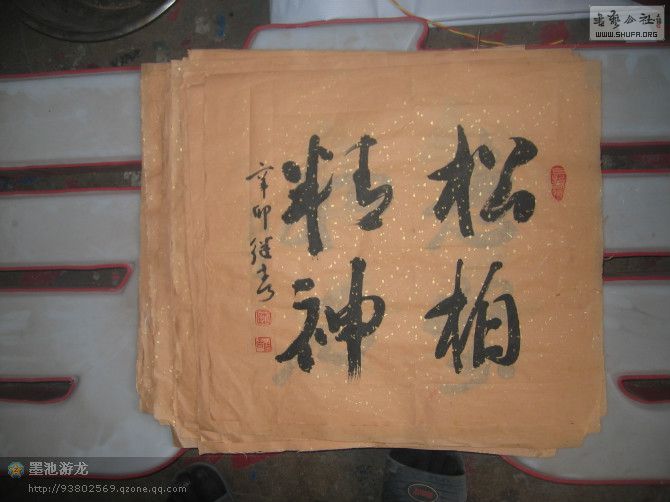 松柏
精神
辛卯继春
书艺公社
WWW.SHUFA.ORG
墨池游龙
http://93802569.qzone.qq.com